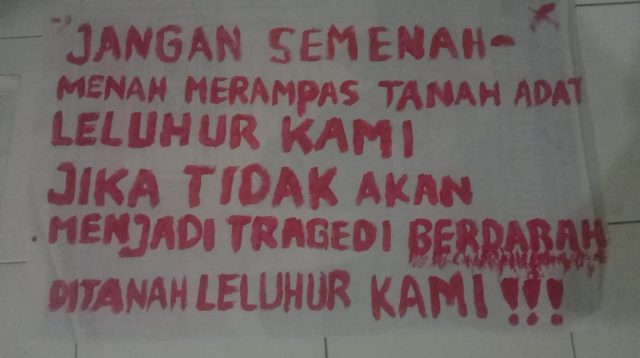 "JANGAN SEMENAH-
MENAH MERAMPAS TANAH ADAT
LELUHUR KAMI
JIKA TIDAK AKAN
MENJADI TRAGEDI BERDARAH
DITANAH LELUHUR KAMI!!!